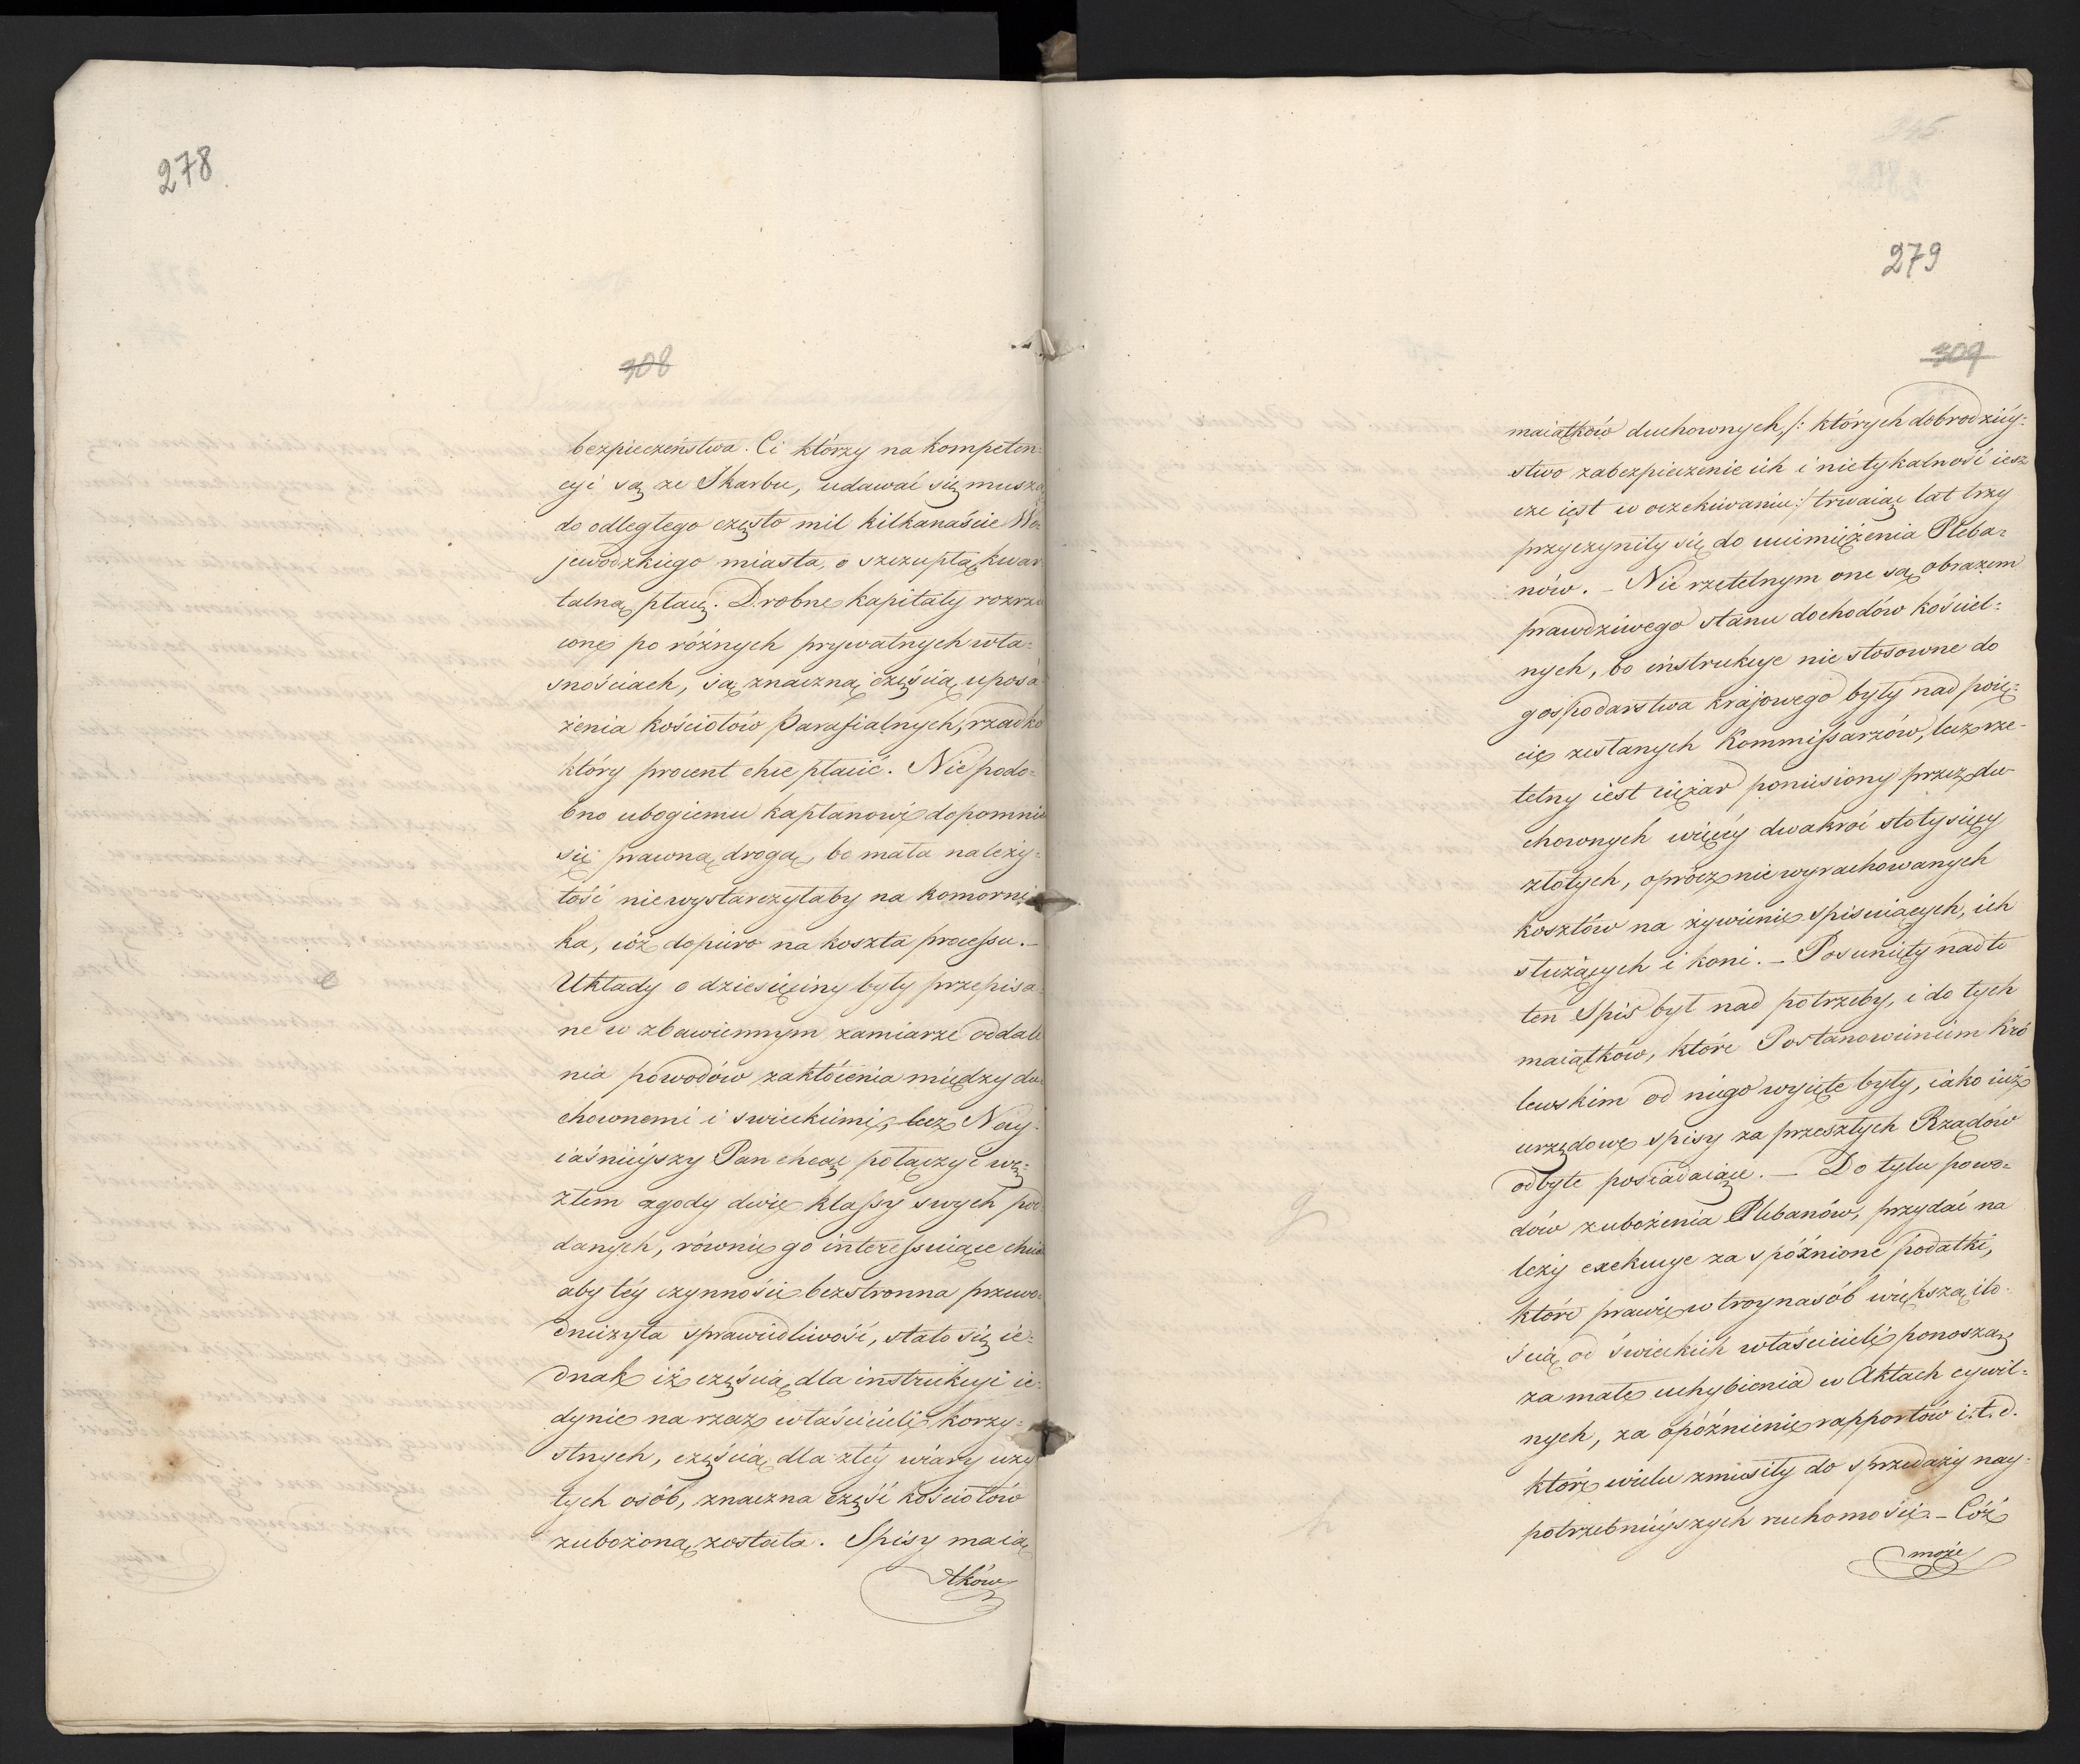 278
308
bezpieczeństwa. Ci którzy na kompeten=
cyi są ze Skarbu, udawać się muszą
do odległego często mil kilkanaście Wo
jewodzkiego miasta, o szczupłą kwar
talną płacę. Drobne kapitały rozrzu
cone po różnych prywatnych wła=
snościach, są znaczną częścią uposa
żenia kościołów Parafialnych, rzadko
który procent chce płacić. Nie podo=
bno ubogiemu kapłanowi dopomnieć
się prawną drogą, bo mała należy=
tość nie wystarczyłaby na komorni
ka, cóż dopiero na koszta processu. –
Układy o dziesięciny były przepisa
ne w zbawiennym zamiarze oddale
nia powodów zakłócenia między du
chownemi i swieckiemi, lecz Nay=
iaśnieyszy Pan chcąc połączyć wę=
złem zgody dwie klassy swych pod
danych, równie go interessuiące chciał
aby téy czynności bezstronna przewo=
dniczyła sprawiedliwość, stało się ie=
dnak iż częścią dla instrukcyi ie=
dynie na rzecz właścicieli korzy=
stnych, częścią dla złéy wiary uży
tych osób, znaczna część kościołów
zubożoną została. Spisy maią
tków
279
309
maiątków duchownych /: których dobrodziéy=
stwo zabezpieczenie ich i nietykalność iesz
cze iest w oczekiwaniu :/ trwaiąc lat trzy
przyczyniły się do uciemiężenia Pleba=
nów. – Nie rzetelnym one są obrazem
prawdziwego stanu dochodów kościel=
nych, bo instrukcye nie stosowne do
gospodarstwa krajowego były nad poię=
cie zesłanych Kommissarzów, lecz rze=
telny iest ciężar poniesiony przez du
chownych więcéy dwakroć stotysięcy
złotych, oprócz nie wyrachowanych
kosztów na żywienie spisuiących, ich
służących i koni. – Posunięty nad to
ten Spis był nad potrzeby, i do tych
maiątków, które Postanowieniem Kró
lewskim od niego wyięte były, iako iuż
urzędowe spisy za przeszłych Rządów
odbyte posiadaiące. – Do tylu powo=
dów zubożenia Plebanów, przydać na
leży exekucye za spóźnione podatki,
które prawie w troynasób większą ilo=
ścią od świeckich właścicieli ponoszą,
za małe uchybienia w Aktach cywil=
nych, za opóźnienie rapportów i. t. d.
które wielu zmusiły do sprzedaży nay=
potrzebnieyszych ruchomości. – Cóż
może